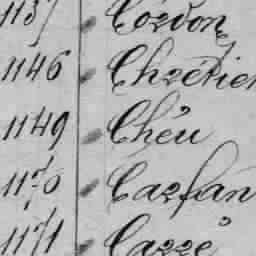 1137 Cordon
1146 Chrétien
1149 Chéu
1170 Carfan
1171 Carré